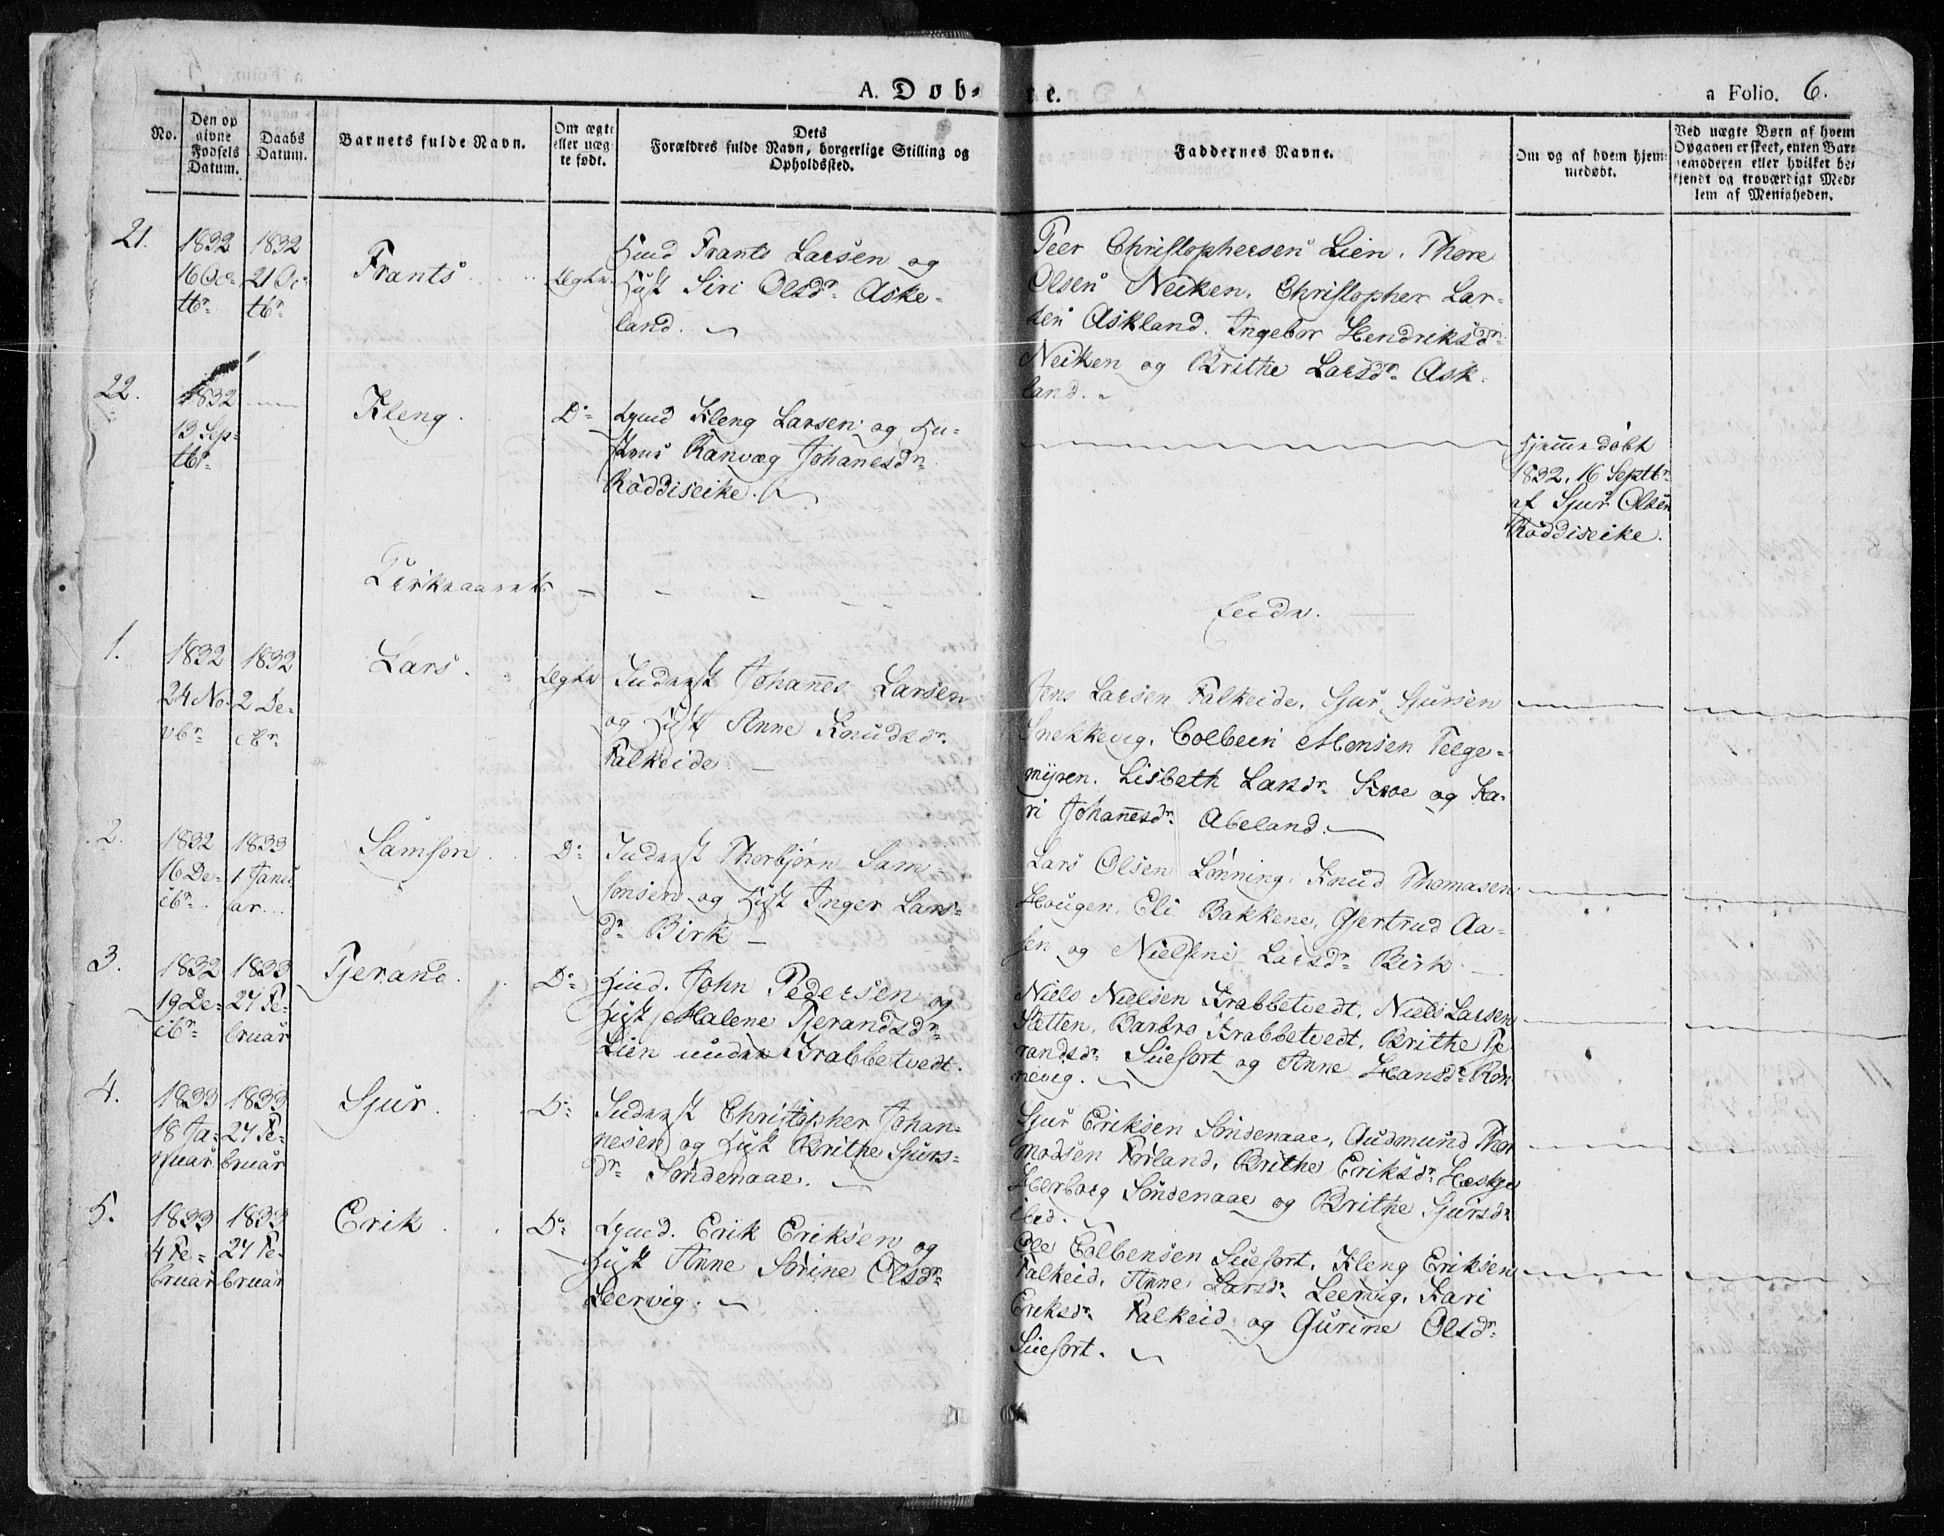 A. Døb-
te.
a Folio. 6.
No.
Den op
givne
Fødsels
Datum.
Daabs
Datum.
Barnets fulde Navn.
Om ægte
eller uæg-
te født.
Dets
Forældres fulde Navn, borgerlige Stilling og
Opholdssted.
Faddernes Navne.
Om og af hvem hjem-
medøbt.
Ved uægte Børn af hvem
Opgaven er skeet, enten Bar-
nemoderen eller hvilket be-
kjendt og troværdigt Med-
lem af Menigheden.
21.
1832
16 Oc-
tbr
1832
21 Oc-
tbr
Frants
Ægte
Huud Frants Larsen og
Hust Siri Olsdr Aske-
land.
Peer Christophersen Lien, Thore
Olsen Neiken, Christopher Lar-
sen Askland. Ingebor Hendriksdr
Neiken og Brithe Larsdr Ask-
land.
22.
1832
13 Sep-
tbr
Kleng.
Do
Huud Kleng Larsen og Hu-
strue Ranvæg Johanesdr
Røddiseike.
Hjemmedøbt
1832, 16 Septbr
af Sjur Olsen
Røddiseike.
Kirkeaarets
Ende.
1.
1832
24 No-
vbr
1832
2 De-
cbr
Lars.
Ægte
Inderst Johannes Larsen
og Hust Anne Knudsdr
Falkeide
Jens Larsen Falkeide, Sjur Sjursen
Snekkevig, Colbein Monsen Felge-
myren. Lisbeth Larsdr Kroe og Ka-
ri Johannesdr Abeland.
2.
1832
16 De-
cbr.
1833
1 Janu
ar
Samson
Do
Inderst Thorbjørn Sam-
sonsen og Hust Inger Lars-
dr Birk
Lars Olsen Lønning, Knud Thomasen
Hougen, Eli Bakkene, Gjertrud Aa-
sen og Nielsine Larsdr Birk.
3.
1832
19 De-
cbr
1833
27 Fe-
bruar
Tjerand.
Do
Huud. John Pedersen og
Hust Malene Tjerandsdr
Lien under Krabbetvedt.
Niels Nielsen Krabbetvedt, Niels Larsen
Sætten, Barbro Krabbetvedt, Brithe Tje
randsdr Suefort og Anne Hansdr Røn
nevig.
4.
1833
18 Ja-
nuar
1833
27 Fe-
bruar
Sjur.
Do
Inderst Christopher Johan-
nesen og Hust Brithe Sjurs-
dr Søndenaae.
Sjur Eriksen Søndenaae, Audmund Thor
modsen Førland, Brithe Eriksdr Heskje
Herborg Søndenaae og Brithe Sjursdr
ibid.
5.
1833
4 Fe-
bruar
1833
27 Fe-
bruar
Erik
Do
Huud. Erik Eriksen og
Hust Anne Sørine Olsdr
Leervig.
Ole Colbensen Suefort, Kleng Eriksen
Falkeid, Anne Larsdr Leervig, Kari
Eriksdr Falkeid og Gurine Olsdr
Suefort.